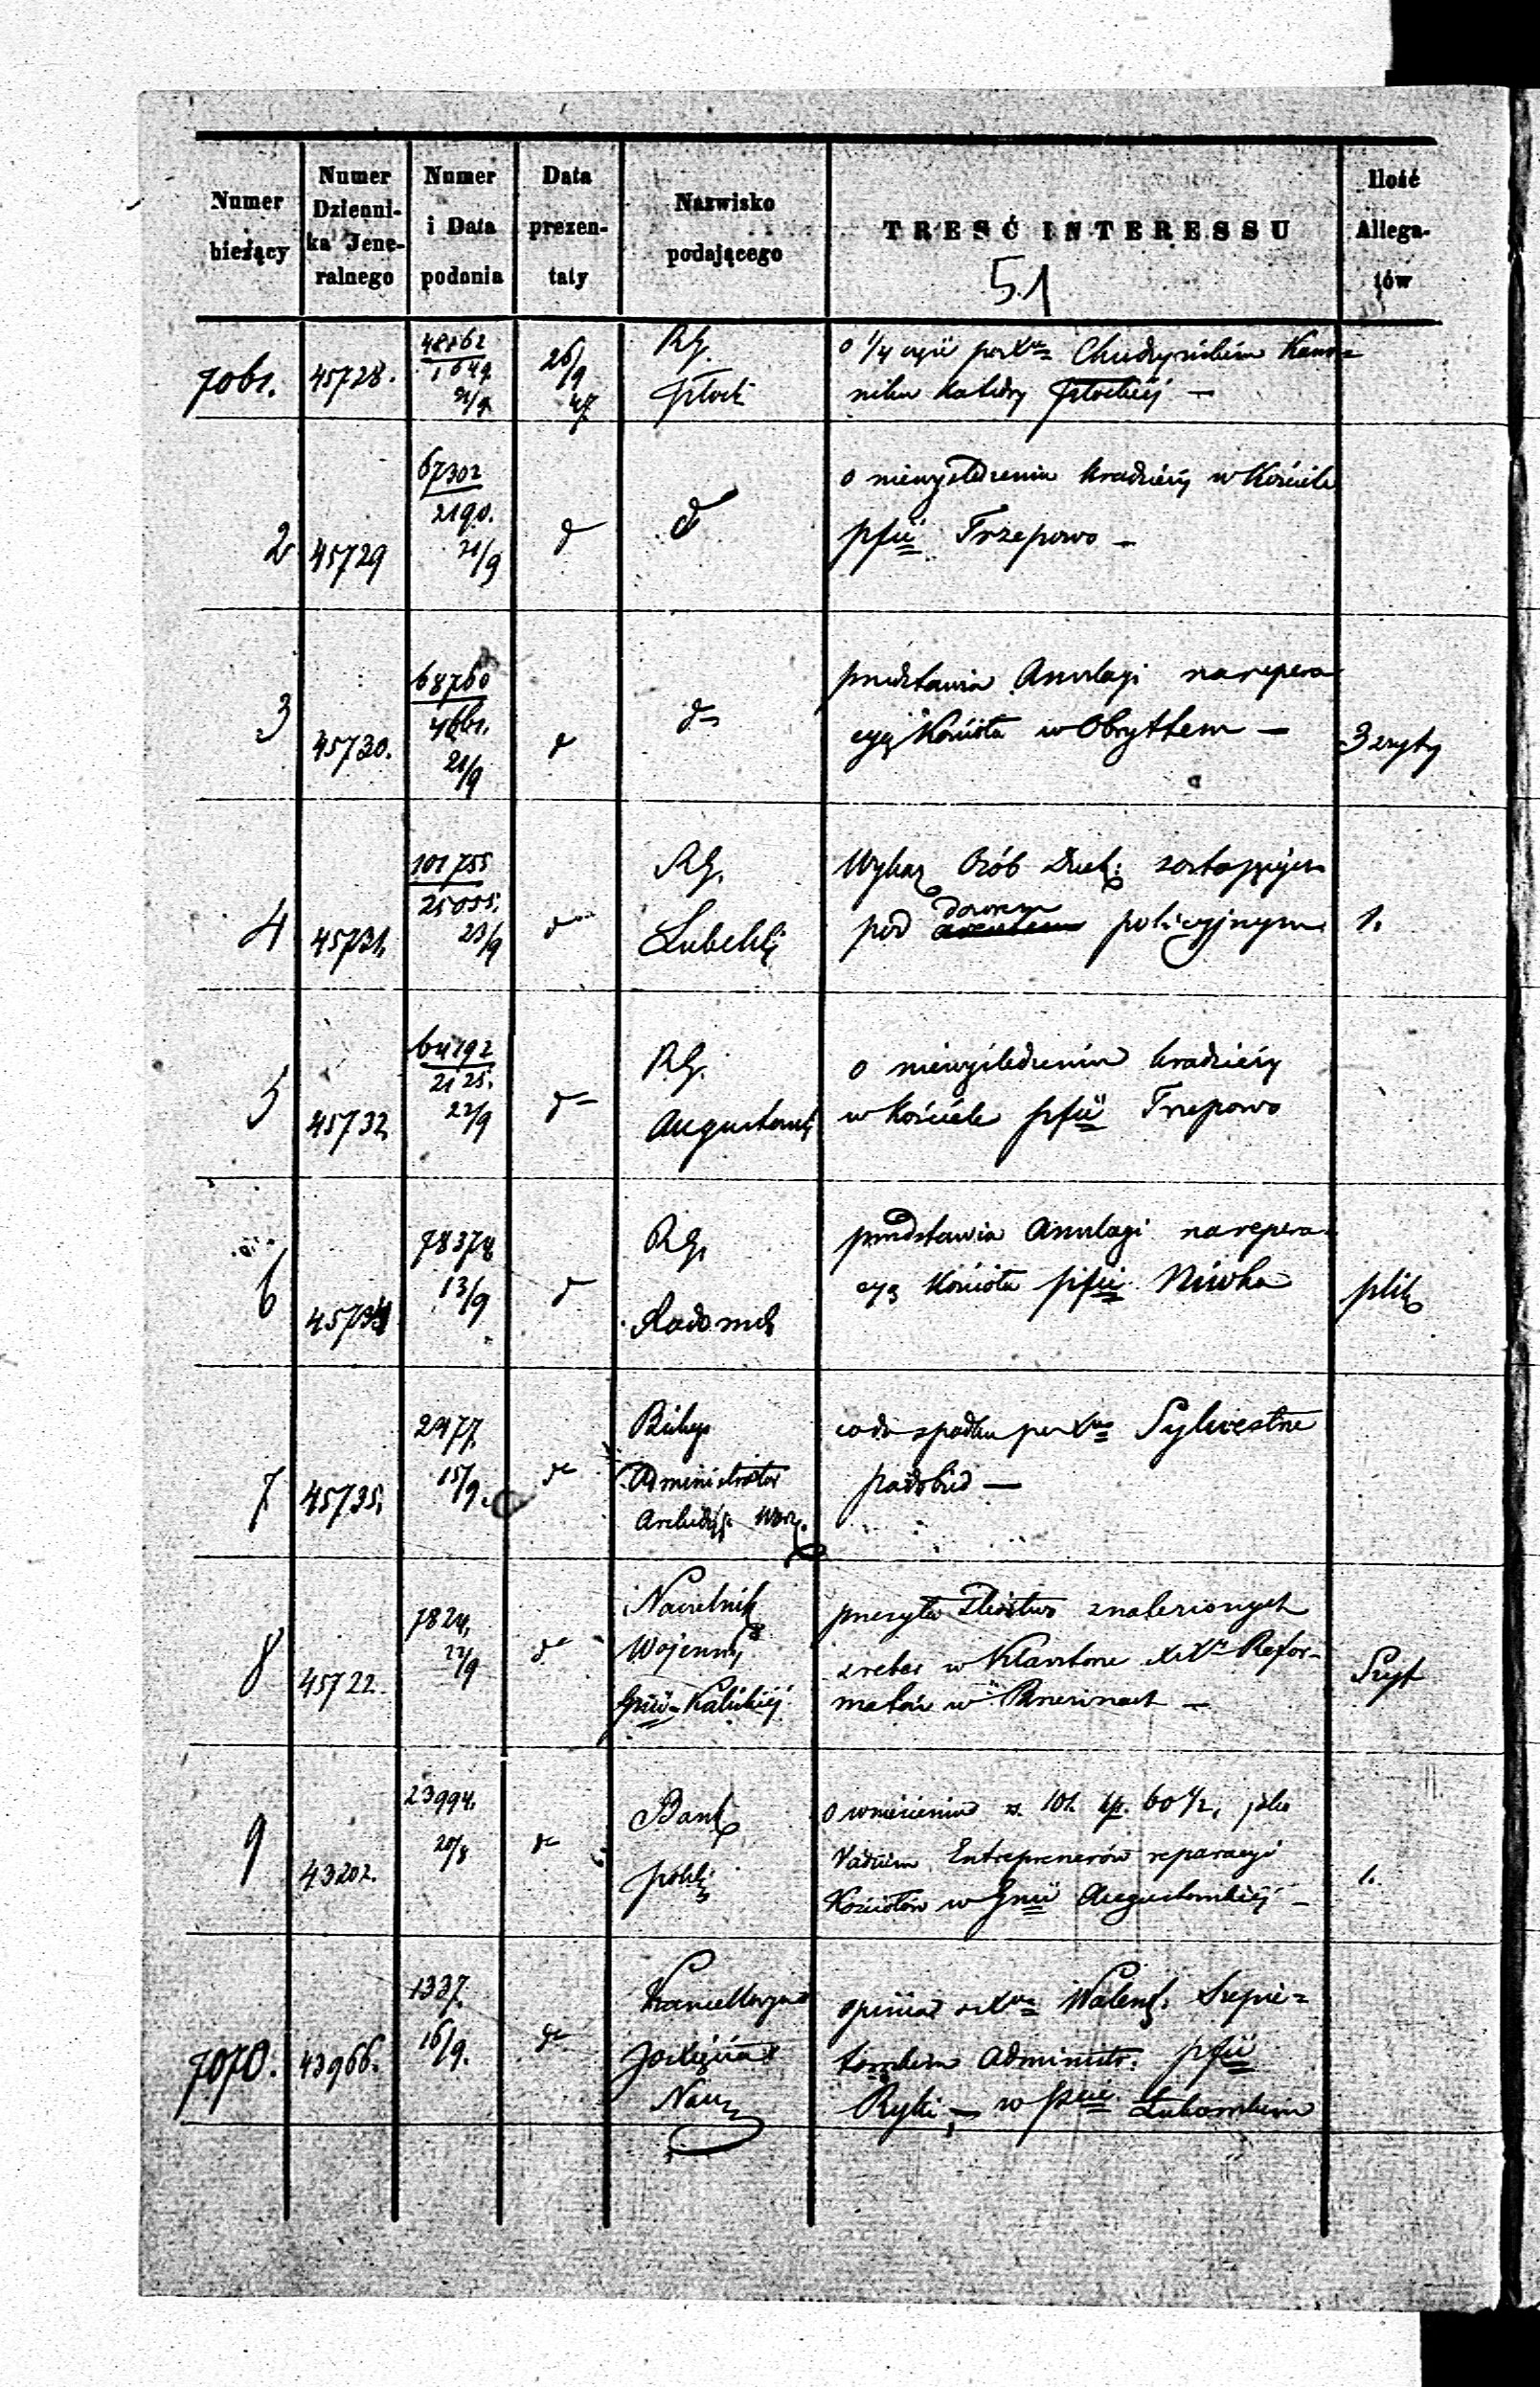 Numer bieżący | Numer Dziennika Jeneralnego | Numer i Data podania | Data prezentaty | Nazwisko podającego | TREŚĆ INTERESSU | Ilość Allegatów
51
7061. 45728. 1649. 21/9 26/9 47 RG.
Płock
o 1/4 cyii po Xu Chudzyńskim Kano=
niku Katedry Płockiéj —
2 45729 67302 2190. 21/9 d d
o niewyśledzeniu kradzieży w Kościele
pfii Trzepowo —
3 45730. 68760 4661. 21/9 d d
przedstawia Anszlagi na repera
cyą Kościoła w Obrytem — 3 zszyty
4 45731. 101755 25055. 23/9 d RG.
Lubelski
Wykaz Osób Duch:
pod dozorem policyjnym 1.
5 45732 64192 2125. 22/9 d RG.
Augustowski
o niewyśledzeniu kradzieży
w Kościele pfii Trzepowo
6 78378 13/9 d RG.
Radomski
przedstawia Anszlagi na repera-
cyą Kościoła pfii Niwka plik
7 45735. 2477. 15/9. d Biskup
Administrator
Archidyec. Warsz.
co do spadku po Xu Sylwestrze
8 45722. 7824. 22/9 d Naczelnik
Wojenny
Gnii Kaliskiéj
przesyła Śledztwo znalezionych
w Klasztorze XX Refor-
matów w Szyt
9 43202. 23994. 20/8 d Bank
Polski
o wniesieniu rs. 101. kp. 60 1/2, jako
Vadium Entreprenerów reparacyi
Kościołów w Gnii Augustowskiéj — 1.
7070. 43966. 1337. 16/9. d Kancellarya
JO Xięcia
Nam
opinia o Xu Walent. Szepie=
towskim Administr. pfii
Ryki — w pcie Łukowskim